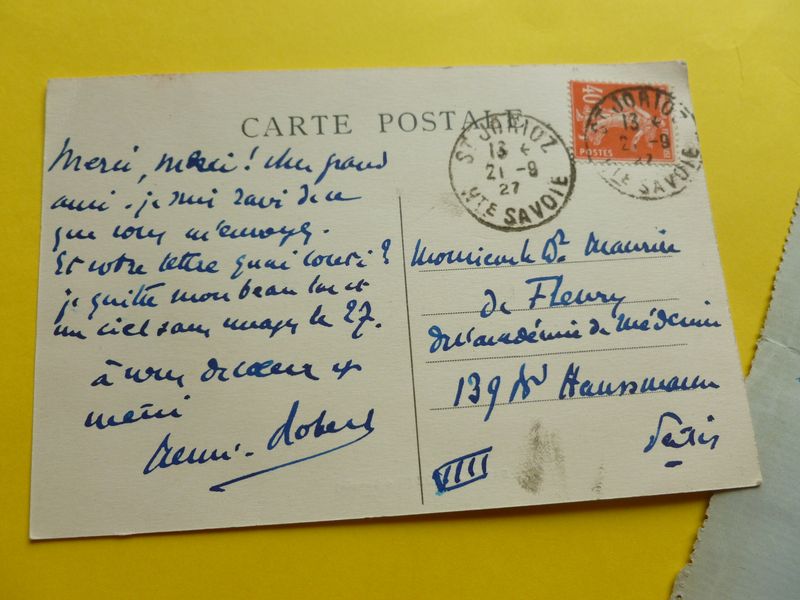 CARTE POSTALE
Merci, merci ! cher grand
ami. je suis ravi de ce
que vous m'envoyez.
Et votre lettre
je quitte mon beau lac et
un ciel sans nuages le 27.
à vous de cœur et
merci
Henri-Robert
Monsieur le Dr. Maurice
de Fleury
de l'académie de Médecine
139 Bd Haussmann
Paris
VIII
ST JORIOZ
13
21-9
27
HTE SAVOIE
40c
POSTES
ST JORIOZ
13
21-9
27
HTE SAVOIE